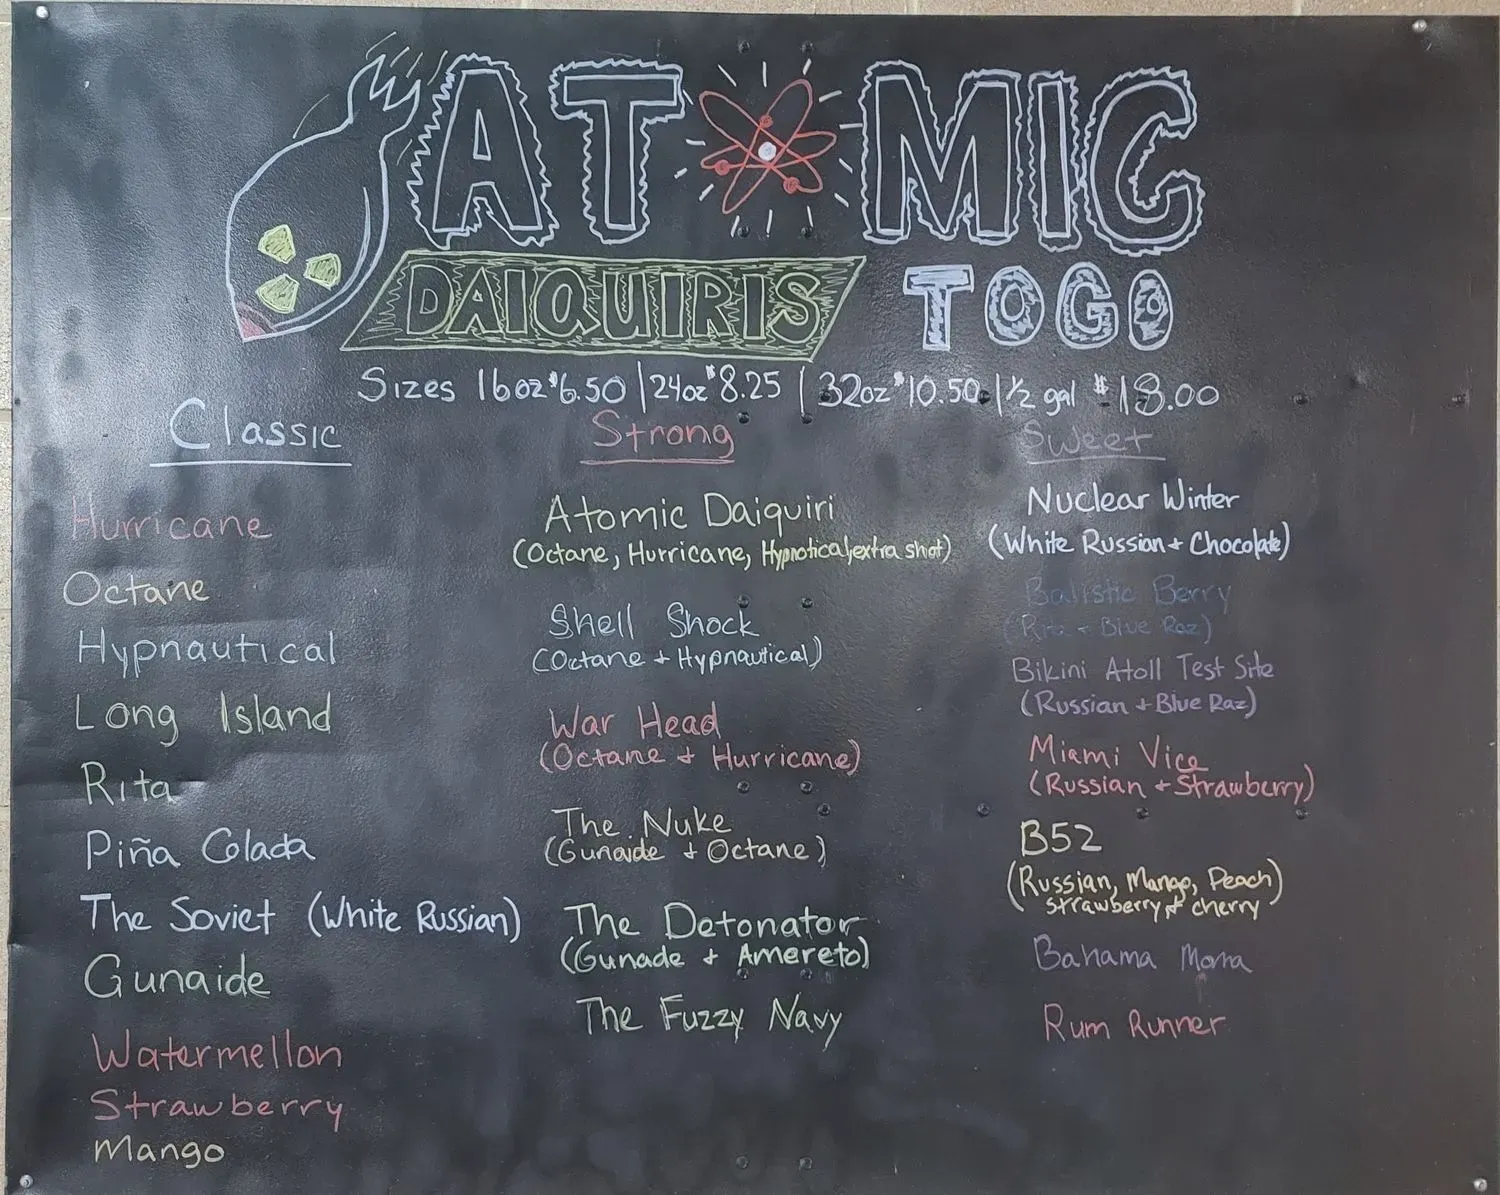 ATOMIC
DAIQUIRIS TOGO
Sizes 16oz $6.50 | 24oz $8.25 | 32oz $10.50 | 1/2 gal $18.00
Classic
Hurricane
Octane
Hypnautical
Long Island
Rita
Piña Colada
The Soviet (White Russian)
Gunaide
Watermellon
Strawberry
Mango
Strong
Atomic Daiquiri
(Octane, Hurricane, Hypnotical, extra shot)
Shell Shock
(Octane + Hypnautical)
War Head
(Octane + Hurricane)
The Nuke
(Gunaide + Octane)
The Detonator
(Gunade + Amereto)
The Fuzzy Navy
Sweet
Nuclear Winter
(White Russian + Chocolate)
Balistic Berry
(Rita + Blue Raz)
Bikini Atoll Test Site
(Russian + Blue Raz)
Miami Vice
(Russian + Strawberry)
B52
(Russian, Mango, Peach)
strawberry + cherry
Bahama Mama
Rum Runner